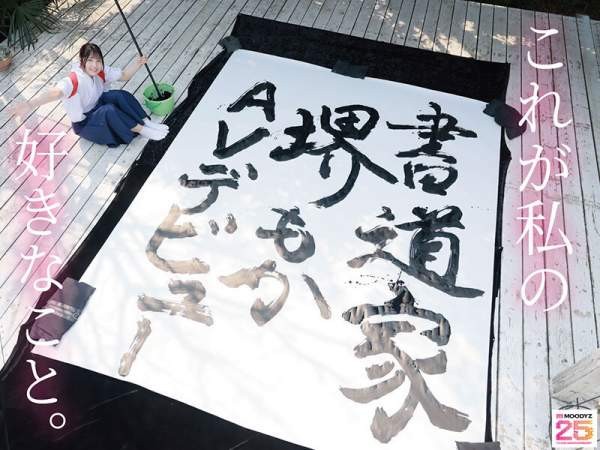 これが私の
好きなこと。
書道家
堺もか
AVデビュー
MOODYZ
25